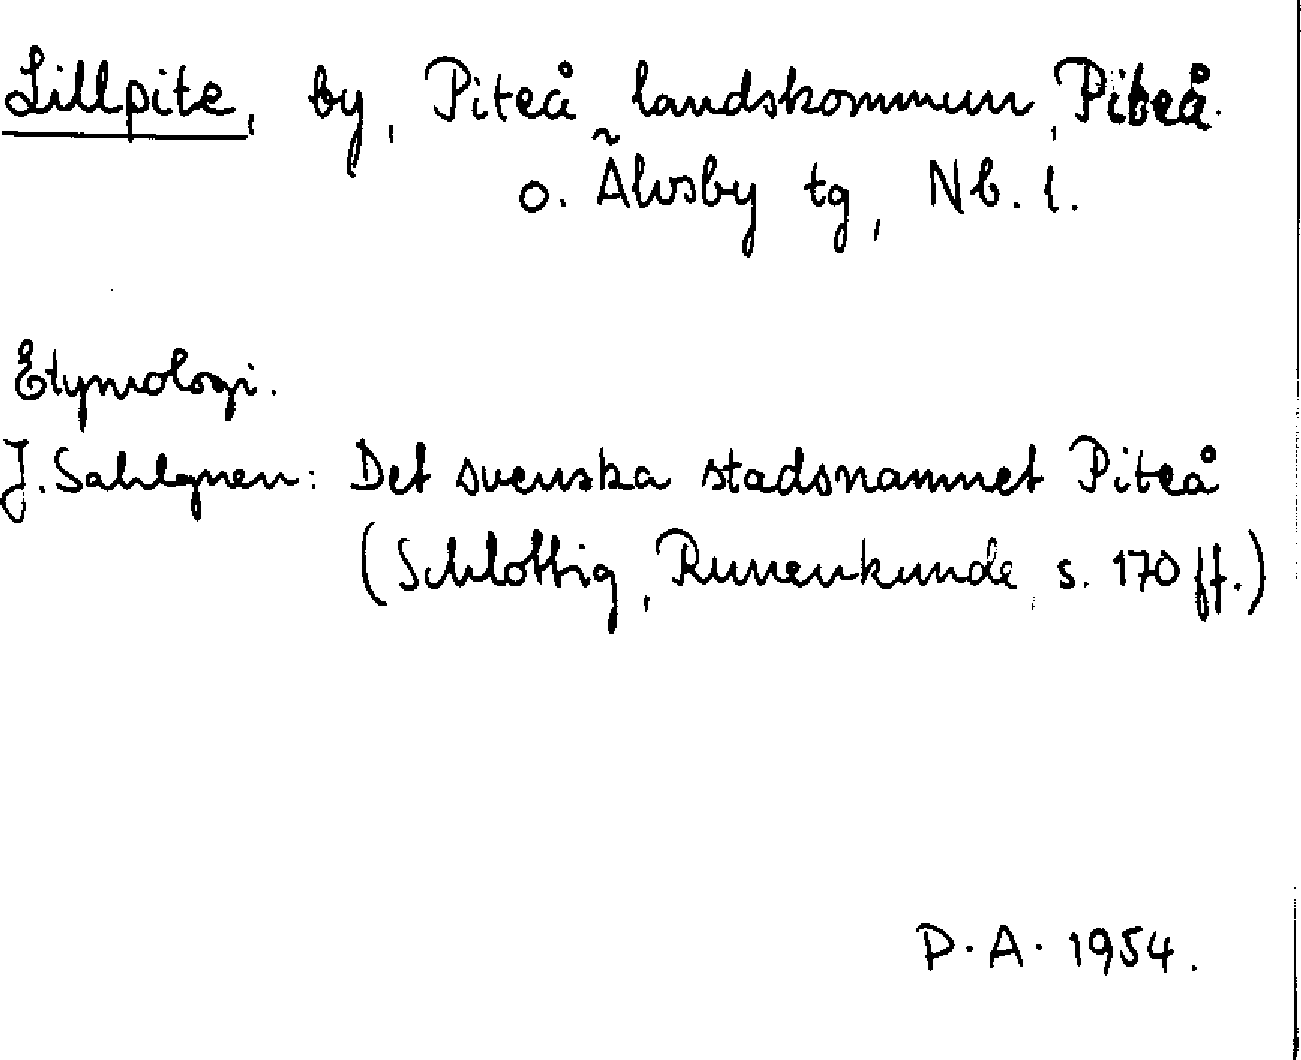 Lillpite, by, Piteå landskommun, Piteå.
o. Älvsby tg, Nb. l.
Etymologi.
J. Sahlgren: Det svenska stadsnamnet Piteå
(Schlottig, Runenkunde, s. 170 ff.)
P. A. 1954.